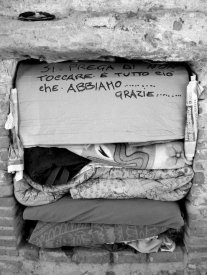 SI PREGA DI NON
TOCCARE E TUTTO CIÒ
che. ABBIAMO..........
GRAZIE.........